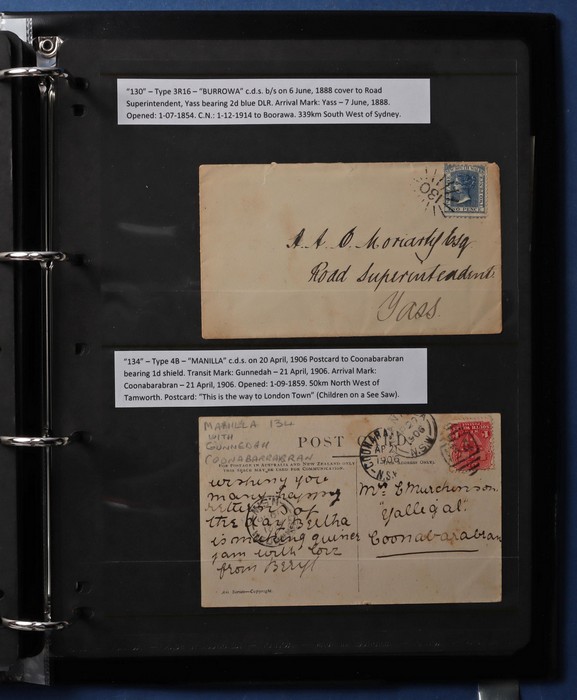 "130" – Type 3R16 – "BURROWA" c.d.s. b/s on 6 June, 1888 cover to Road
Superintendent, Yass bearing 2d blue DLR. Arrival Mark: Yass – 7 June, 1888.
Opened: 1-07-1854. C.N.: 1-12-1914 to Boorawa. 339km South West of Sydney.
130
TWO PENCE
A. A. C. Moriarty Esq
Road Superintendent
Yass.
"134" – Type 4B – "MANILLA" c.d.s. on 20 April, 1906 Postcard to Coonabarabran
bearing 1d shield. Transit Mark: Gunnedah – 21 April, 1906. Arrival Mark:
Coonabarabran – 21 April, 1906. Opened: 1-09-1859. 50km North West of
Tamworth. Postcard: "This is the way to London Town" (Children on a See Saw).
MANILLA 134
WITH
GUNNEDAH
COONABARRABRAN
POST CARD
FOR POSTAGE IN AUSTRALIA AND NEW ZEALAND ONLY
THIS SPACE MAY BE USED FOR COMMUNICATION
AP 21
1906
N.S.W
wishing you
many happy
returns of
the day Bertha
is making quince
jam with love
from Beryl
Mrs E Murchinson
"Yallegal"
Coonabarabran